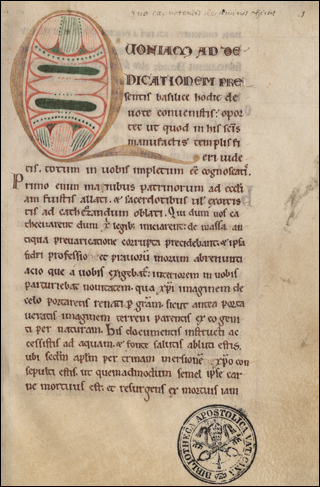 carnotensis
QUONIAM AD DE
DICATIONEM PRE
sentis basilice hodie de
uote conuenistis; opor
tet ut quod in his scis
manufactis templis fi
eri uide
tis, totum in uobis impletum ee cognoscatis.
Primo enim manibus patrinorum ad eccli
am fuistis allati, & sacerdotibus uel exorcis
tis ad cathezandum oblati. Qui dum uos ca
thecizarent dum xpi legibus iniciarent; de massa an
tiqua preuaricatione corrupti precidebant, & ipsa
fidei professio & priorum morum abrenunti
atio que a uobis exigebat; interiorem in uobis
parturiebat nouitatem, qua xpi imaginem de
celo portaretis renati per gram, sicut antea porta
ueratis imaginem terreni parentis ex eo geni
ti per naturam. His documentis instructi ac
cessistis ad aquam, & fonte salutis abluti estis,
ubi scdm aplm per trinam mersionem xpo con
sepulti estis, ut quemadmodum semel ipse car
ne mortuus est, et resurgens ex mortuis iam
BIBLIOTHECA APOSTOLICA VATICANA